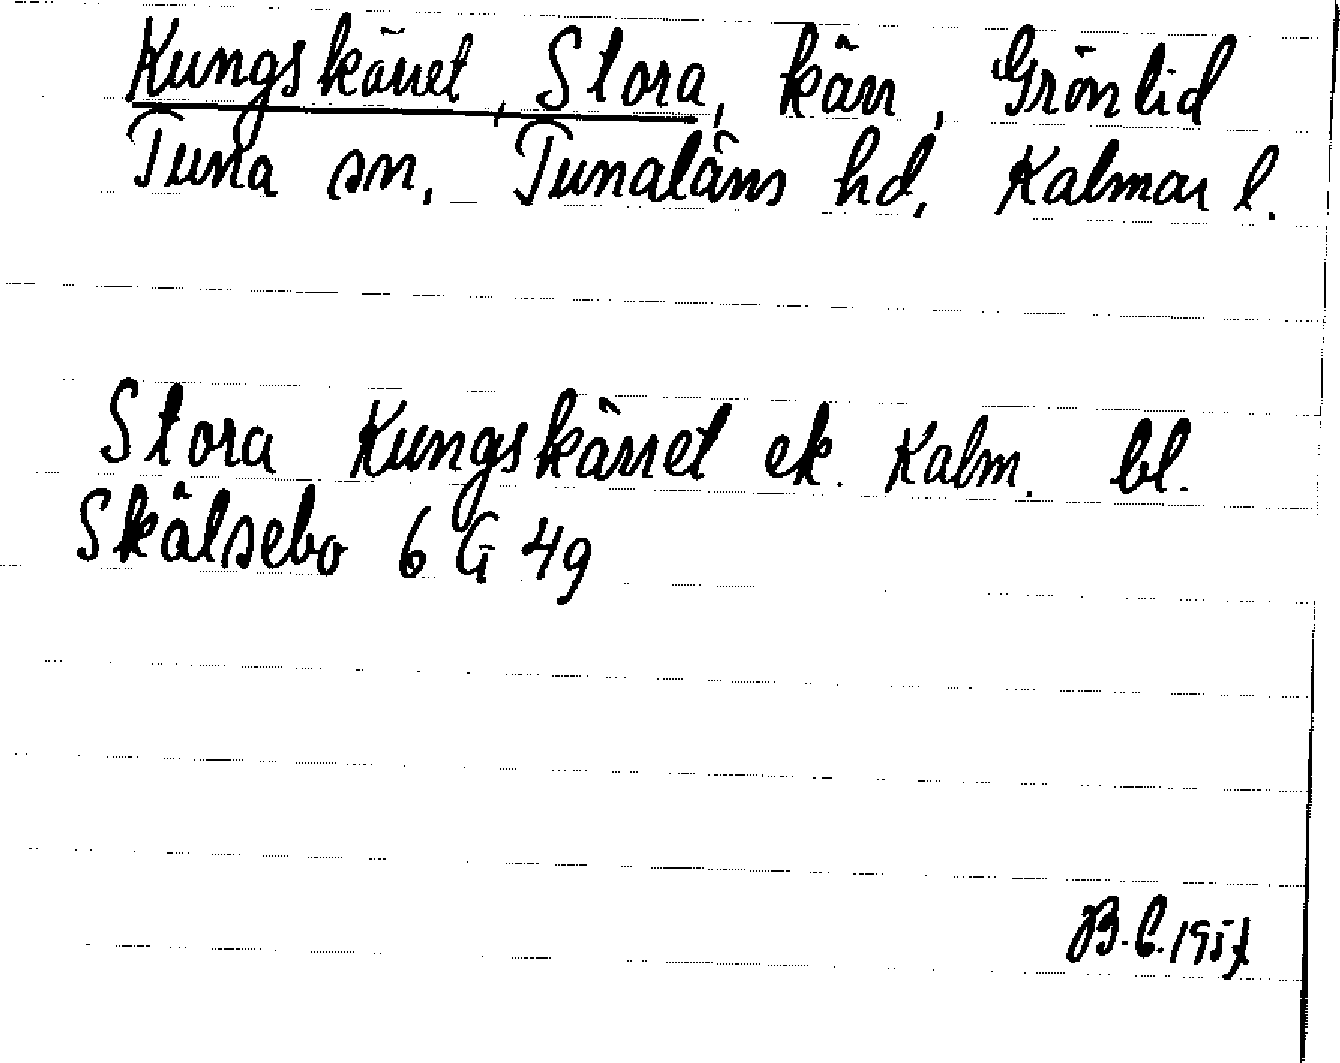 Kungskärret, Stora, kärr, Grönlid
Tuna sn, Tunaläns hd, Kalmar l.
Stora Kungskärret ek. Kalm. bl.
Skälsebo 6 G 4g
B.E. 1957